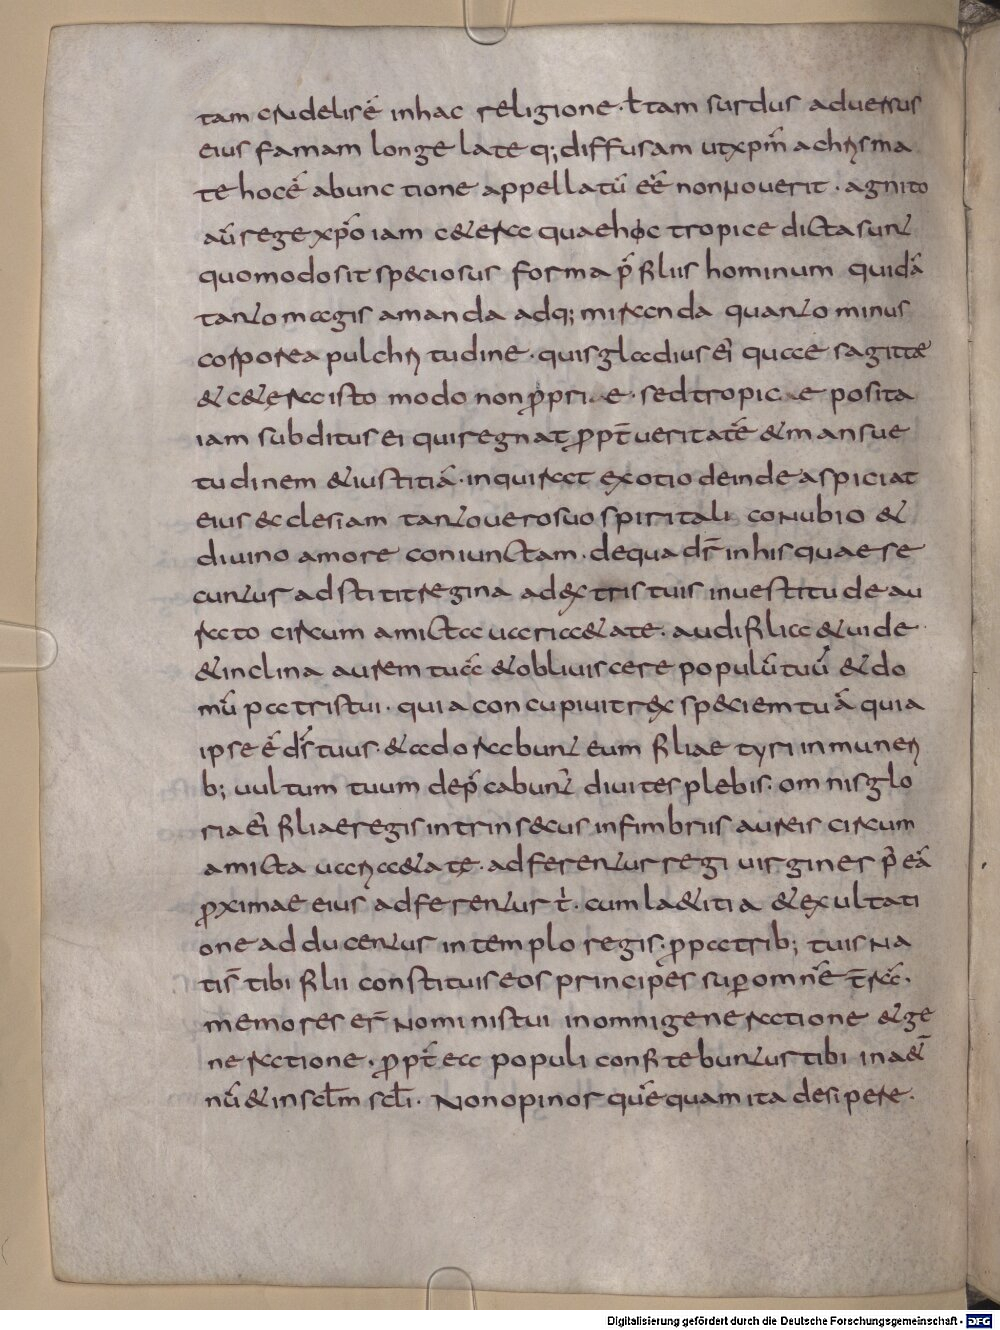 tam crudelis ē in hac religione · ł tam surdus aduersus
eius famam longe late q; diffusam ut xpm̄ a chrisma
te hoc ē ab unctione appellatū eē non nouerit · agnito
aū rege xpo iam cetera quae hoc tropice dicta sunt
quomodo sit speciosus forma p̄ filiis hominum quidā
tanto magis amanda adq; miranda quanto minus
corporea pulchritudine · quis gladius ei quae sagittae
& cetera isto modo non propri e · sed tropic e posita
iam subditus ei qui regnat ppt̄ ueritatē & mansue
tudinem & iustitiā · inquirat ex otio deinde aspiciat
eius ecclesiam tanto uero suo spiritali conubio &
diuino amore coniunctam · de qua dr̄ in his quae se
cuntur adstitit regina a dextris tuis in uestitu de au
rato circum amicta uarietate · audi filia & uide
& inclina aurem tuā & obliuiscere populū tuū & do
mū patris tui · quia concupiuit rex speciem tuā quia
ipse ē ds̄ tuus · & adorabunt eum filiae tyri in muneri
b; uultum tuum dep̄cabunt diuites plebis · omnis glo
ria ei filiae regis intrinsecus in fimbriis aureis circum
amicta uarietate · adferentur regi uirgines p̄ eā
proximae eius adferentur t̄ · cum laetitia & exultati
one adducentur in templo regis · p patrib; tuis na
tis̄ tibi filii constitui s eos principes sup omnē t̄rā ·
memores er̄ nominis tui in omni generatione & ge
neratione · ppt̄ ea populi confitebuntur tibi in aet̄
nū & in sclm̄ scli · Non opinor quē quam ita desipere ·
Digitalisierung gefördert durch die Deutsche Forschungsgemeinschaft - DFG